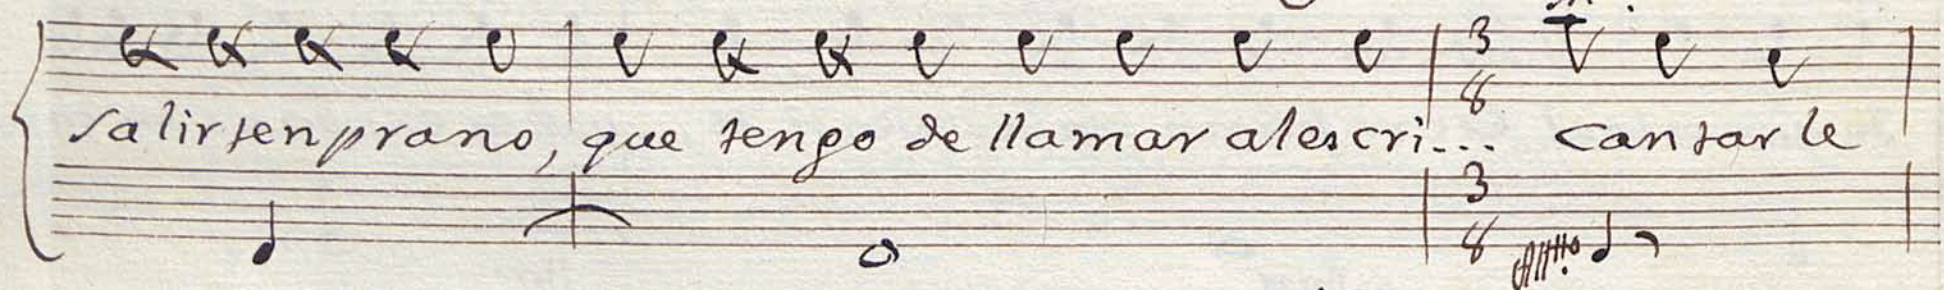 3
8
salir tenprano, que tengo de llamar al escri... cantar le
3
8 All.tto